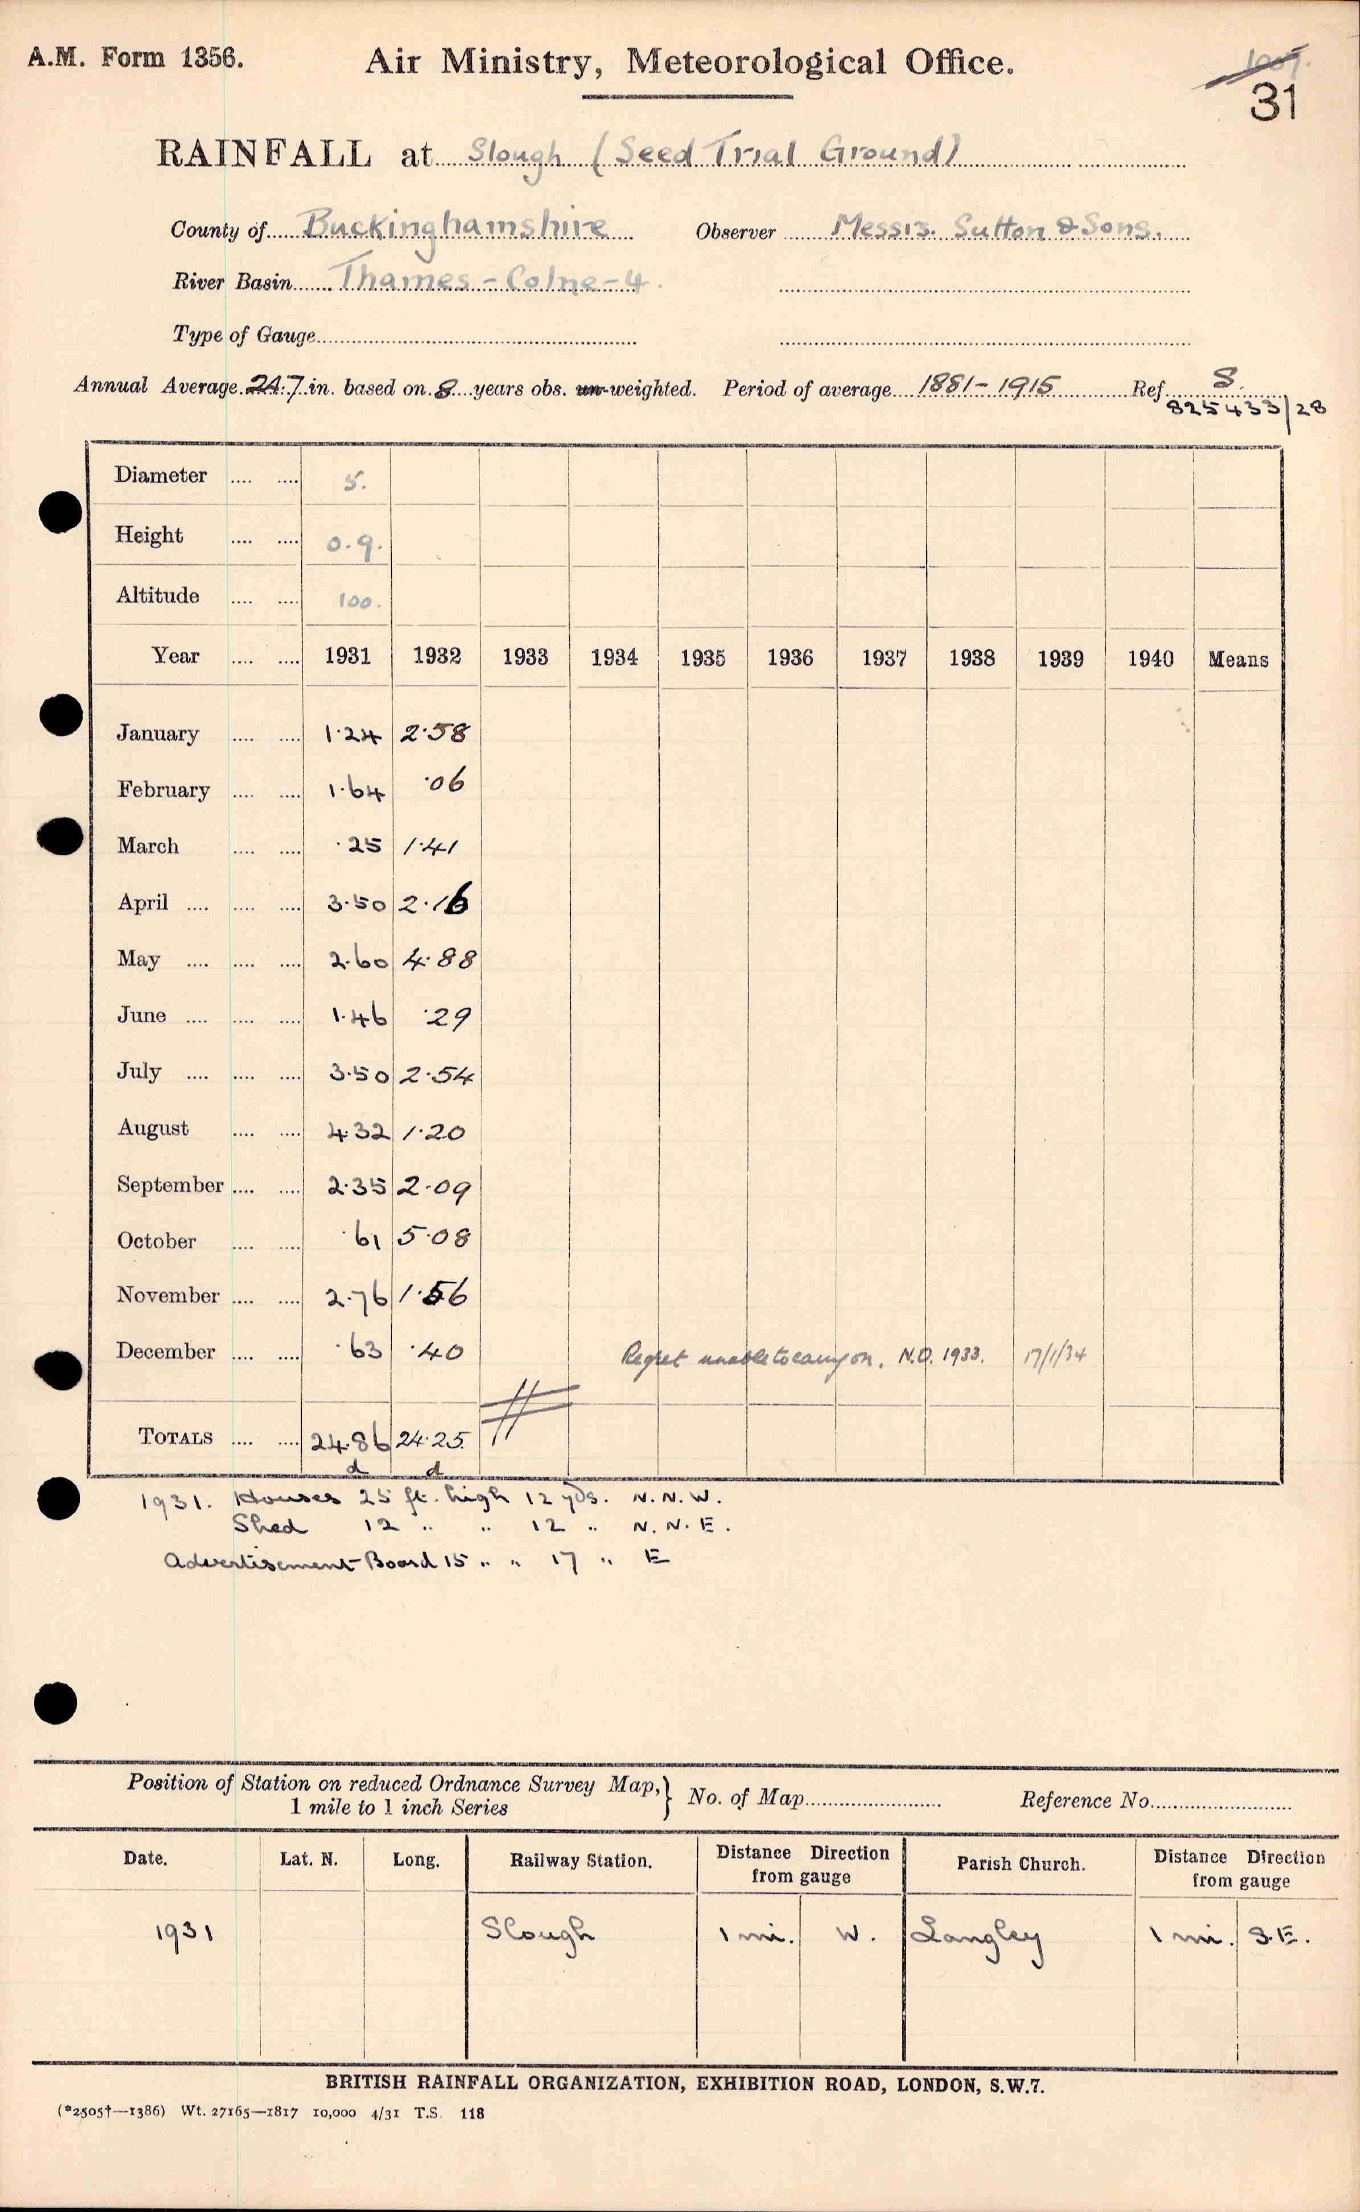 A.M. Form 1356.
Air Ministry, Meteorological Office.
31
RAINFALL at Slough (Seed Trial Ground)
County of Buckinghamshire Observer Messrs. Sutton & Sons.
River Basin Thames - Colne - 4.
Type of Gauge
Annual Average 24.7 in. based on 8 years obs. un-weighted. Period of average 1881 - 1915 Ref. S.
825433/28
Diameter .... .... 5.
Height .... .... 0.9.
Altitude .... .... 100.
Year .... .... 1931 1932 1933 1934 1935 1936 1937 1938 1939 1940 Means
January .... .... 1.24 2.58
February .... .... 1.64 .06
March .... .... .25 1.41
April .... .... .... 3.50 2.16
May .... .... .... 2.60 4.88
June .... .... .... 1.46 .29
July .... .... .... 3.50 2.54
August .... .... 4.32 1.20
September .... .... 2.35 2.09
October .... .... .61 5.08
November .... .... 2.76 1.56
December .... .... .63 .40 Regret unable to carry on. N.O. 1933. 17/1/34
TOTALS .... .... 24.86 24.25
d d
1931. Houses 25 ft. high 12 yds. N.N.W.
Shed 12 " " 12 " N.N.E.
Advertisement Board 15 " " 17 " E
Position of Station on reduced Ordnance Survey Map, } No. of Map Reference No.
1 mile to 1 inch Series
Date. Lat. N. Long. Railway Station. Distance Direction from gauge Parish Church. Distance Direction from gauge
1931 Slough 1 mi. W. Langley 1 mi. S.E.
BRITISH RAINFALL ORGANIZATION, EXHIBITION ROAD, LONDON, S.W.7.
(*2505†—1386) Wt. 27165—1817 10,000 4/31 T.S. 118